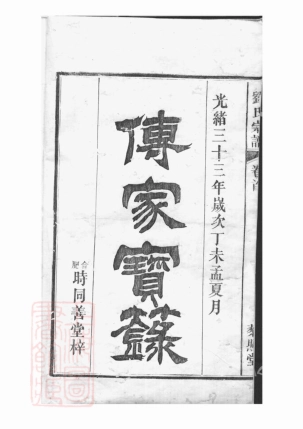 劉氏宗譜 卷首
光緒三十三年歲次丁未孟夏月
傳家寶籙
合肥
時同善堂梓